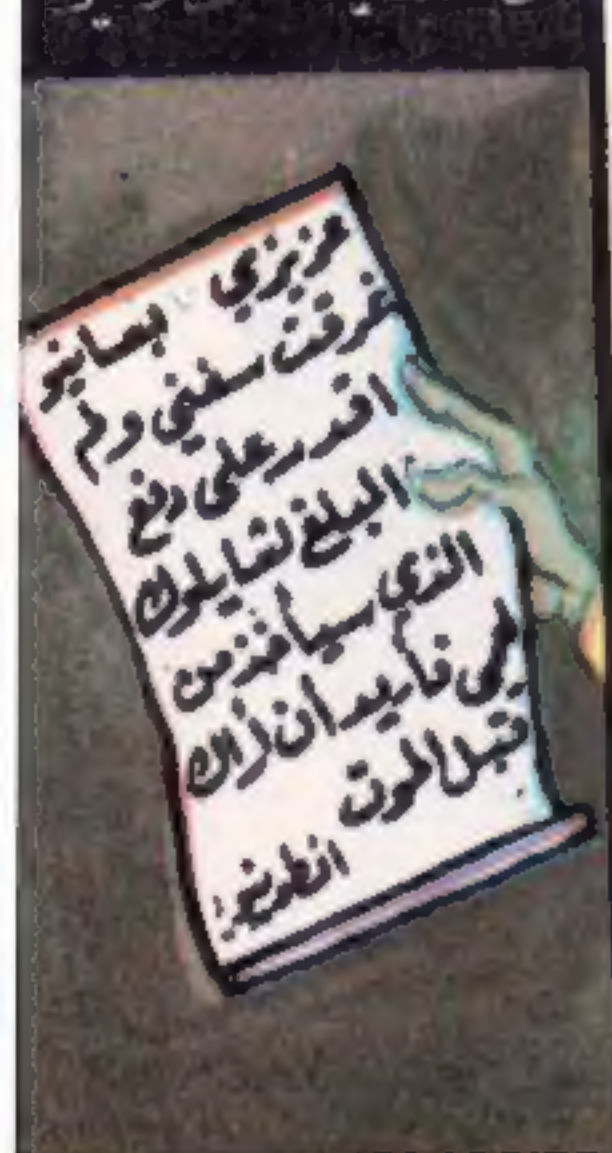 عزيزي بسانيو
غرقت سفني ولم
اقدر على دفع
المبلغ لشايلوك
الذي سيأخذ من
لحمي فأريد أن أراك
قبل الموت
انطونيو